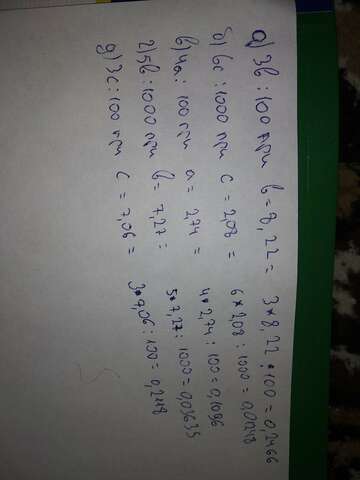 а) 3в : 100 при в = 8,22 = 3*8,22 : 100 = 0,2466
б) 6с : 1000 при с = 2,08 = 6*2,08 : 1000 = 0,01248
в) 4а : 100 при а = 2,74 = 4*2,74 : 100 = 0,1096
г) 5в : 1000 при в = 7,27 = 5*7,27 : 1000 = 0,03635
д) 3с : 100 при с = 7,06 = 3*7,06 : 100 = 0,2118